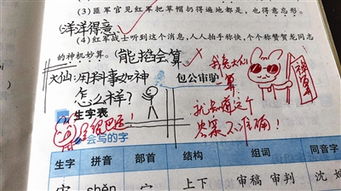 (3)匪军官见红军把草帽扔得遍地都是,也得意忘形。
(洋洋得意)
(4)红军战士听到这个消息,人人拍手称快,个个称赞贺龙同志
的神机妙算。(能掐会算)
大仙:用料事如神
怎么样?
包公审驴
我是大仙
算
我知道这个
答案不准确!
生字表
会写的字
生字 拼音 部首 结构 组词 同音字
宀 上下 审稿 审判 沈